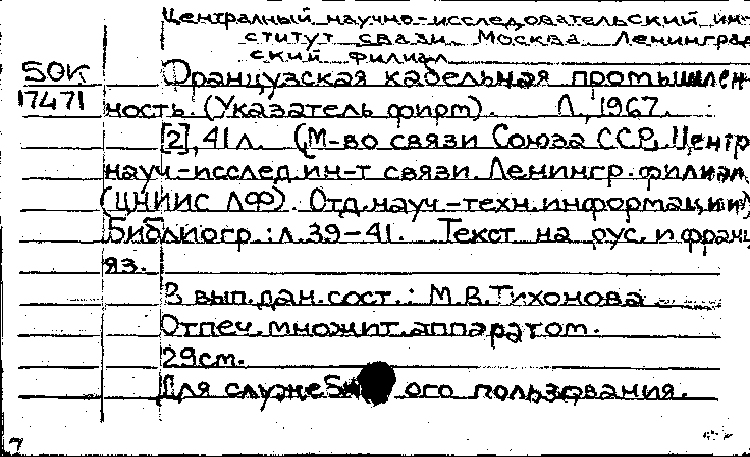 Центральный научно-исследовательский ин-
ститут связи. Москва. Ленинград
ский филиал
50К Французская кабельная промышлен
17471 ность. (Указатель фирм). Л., 1967.
[2], 41 л. (М-во связи Союза ССР. Центр
науч.-исслед. ин-т связи. Ленингр. филиал
(ЦНИИС ЛФ). Отд. науч.-техн. информации)
Библиогр.: л. 39-41. Текст на рус. и франц
яз.
В вып. дан. сост.: М.В. Тихонова
Отпеч. множит. аппаратом.
29см.
Для служебн ого пользования.
7